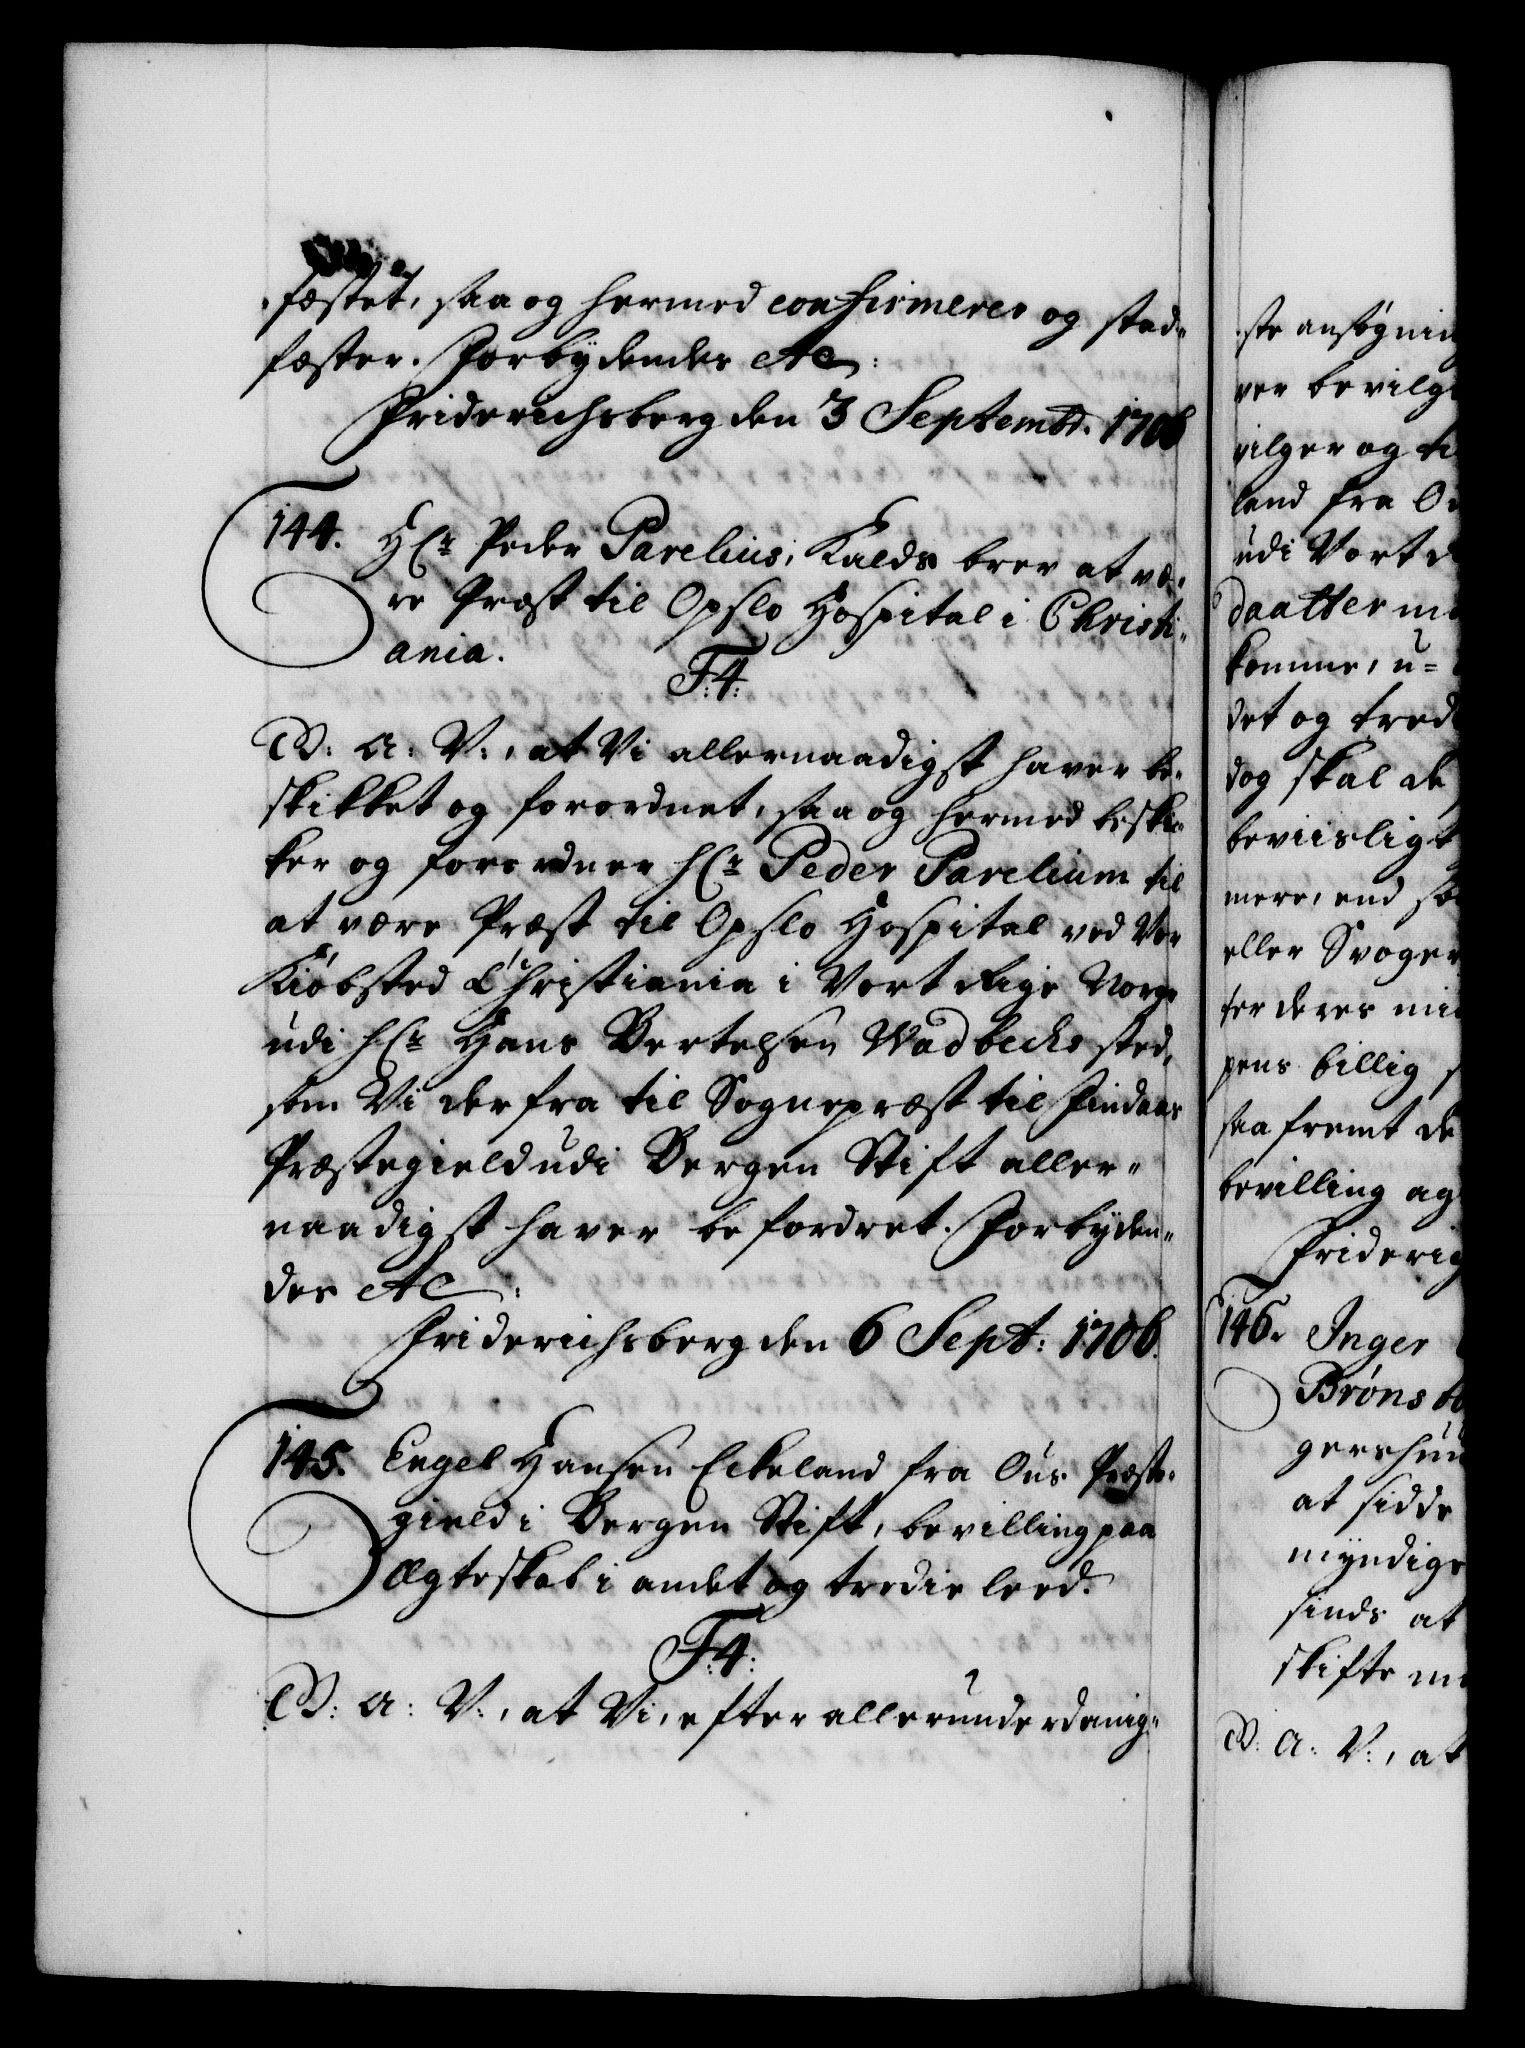 fæstet, saa og hermed confirmerer og stad-
fæster. Forbydendes etc:
Friderichsberg den 3 Septembr. 1706
144. Hr Peder Parelius, Kalds brev at væ-
re Præst til Opslo Hospital i Christi-
ania.
F:4:
W: A: V:, at Vi allernaadigst haver be-
skikket og forordnet, saa og hermed beski-
ker og forordner Hr Peder Parelium til
at være Præst til Opslo Hospital ved Vor
Kiöbsted Christiania i Vort Rige Norge
udi Hr Hans Bertelsen Wadbechs sted,
som Vi derfra til Sognepræst til Findaas
Præstegield udi Bergen Stift aller-
naadigst haver befordret. Forbyden-
des etc:
Friderichsberg den 6 Sept: 1706.
145. Engel Hansen Eckeland fra Ous Præste-
gield i Bergen Stift, bevilling paa
Ægteskab i andet og tredie leed.
F:4:
W: A: V:, at Vi, efter allerunderdanig-
ste ansøgnin
ver bevilg
vilger og ti
land fra O
udi Vort
daatter m
komme, u-
det og tred
dog skal de
beviisligt
mere, end
eller Svoger
ter deres mi
pens billig
saa fremt de
bevilling ag
Friderig
146. Inger
Brøns
gershu
at sidde
myndige
sinds at
skifte m
W: A: V:, at